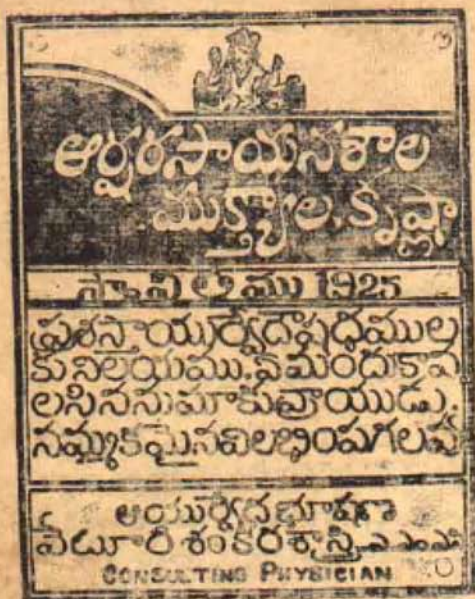 ఆర్షరసాయనశాల
ముక్త్యాల. కృష్ణా
స్థాపితము 1925
ప్రశస్తాయుర్వేదౌషధముల
కు నిలయము. ఏ మందు కావ
లసినను మాకు వ్రాయుడు.
నమ్మకమైన
ఆయుర్వేద భూషణ
వేటూరి శంకరశాస్త్రి
CONSULTING PHYSICIAN